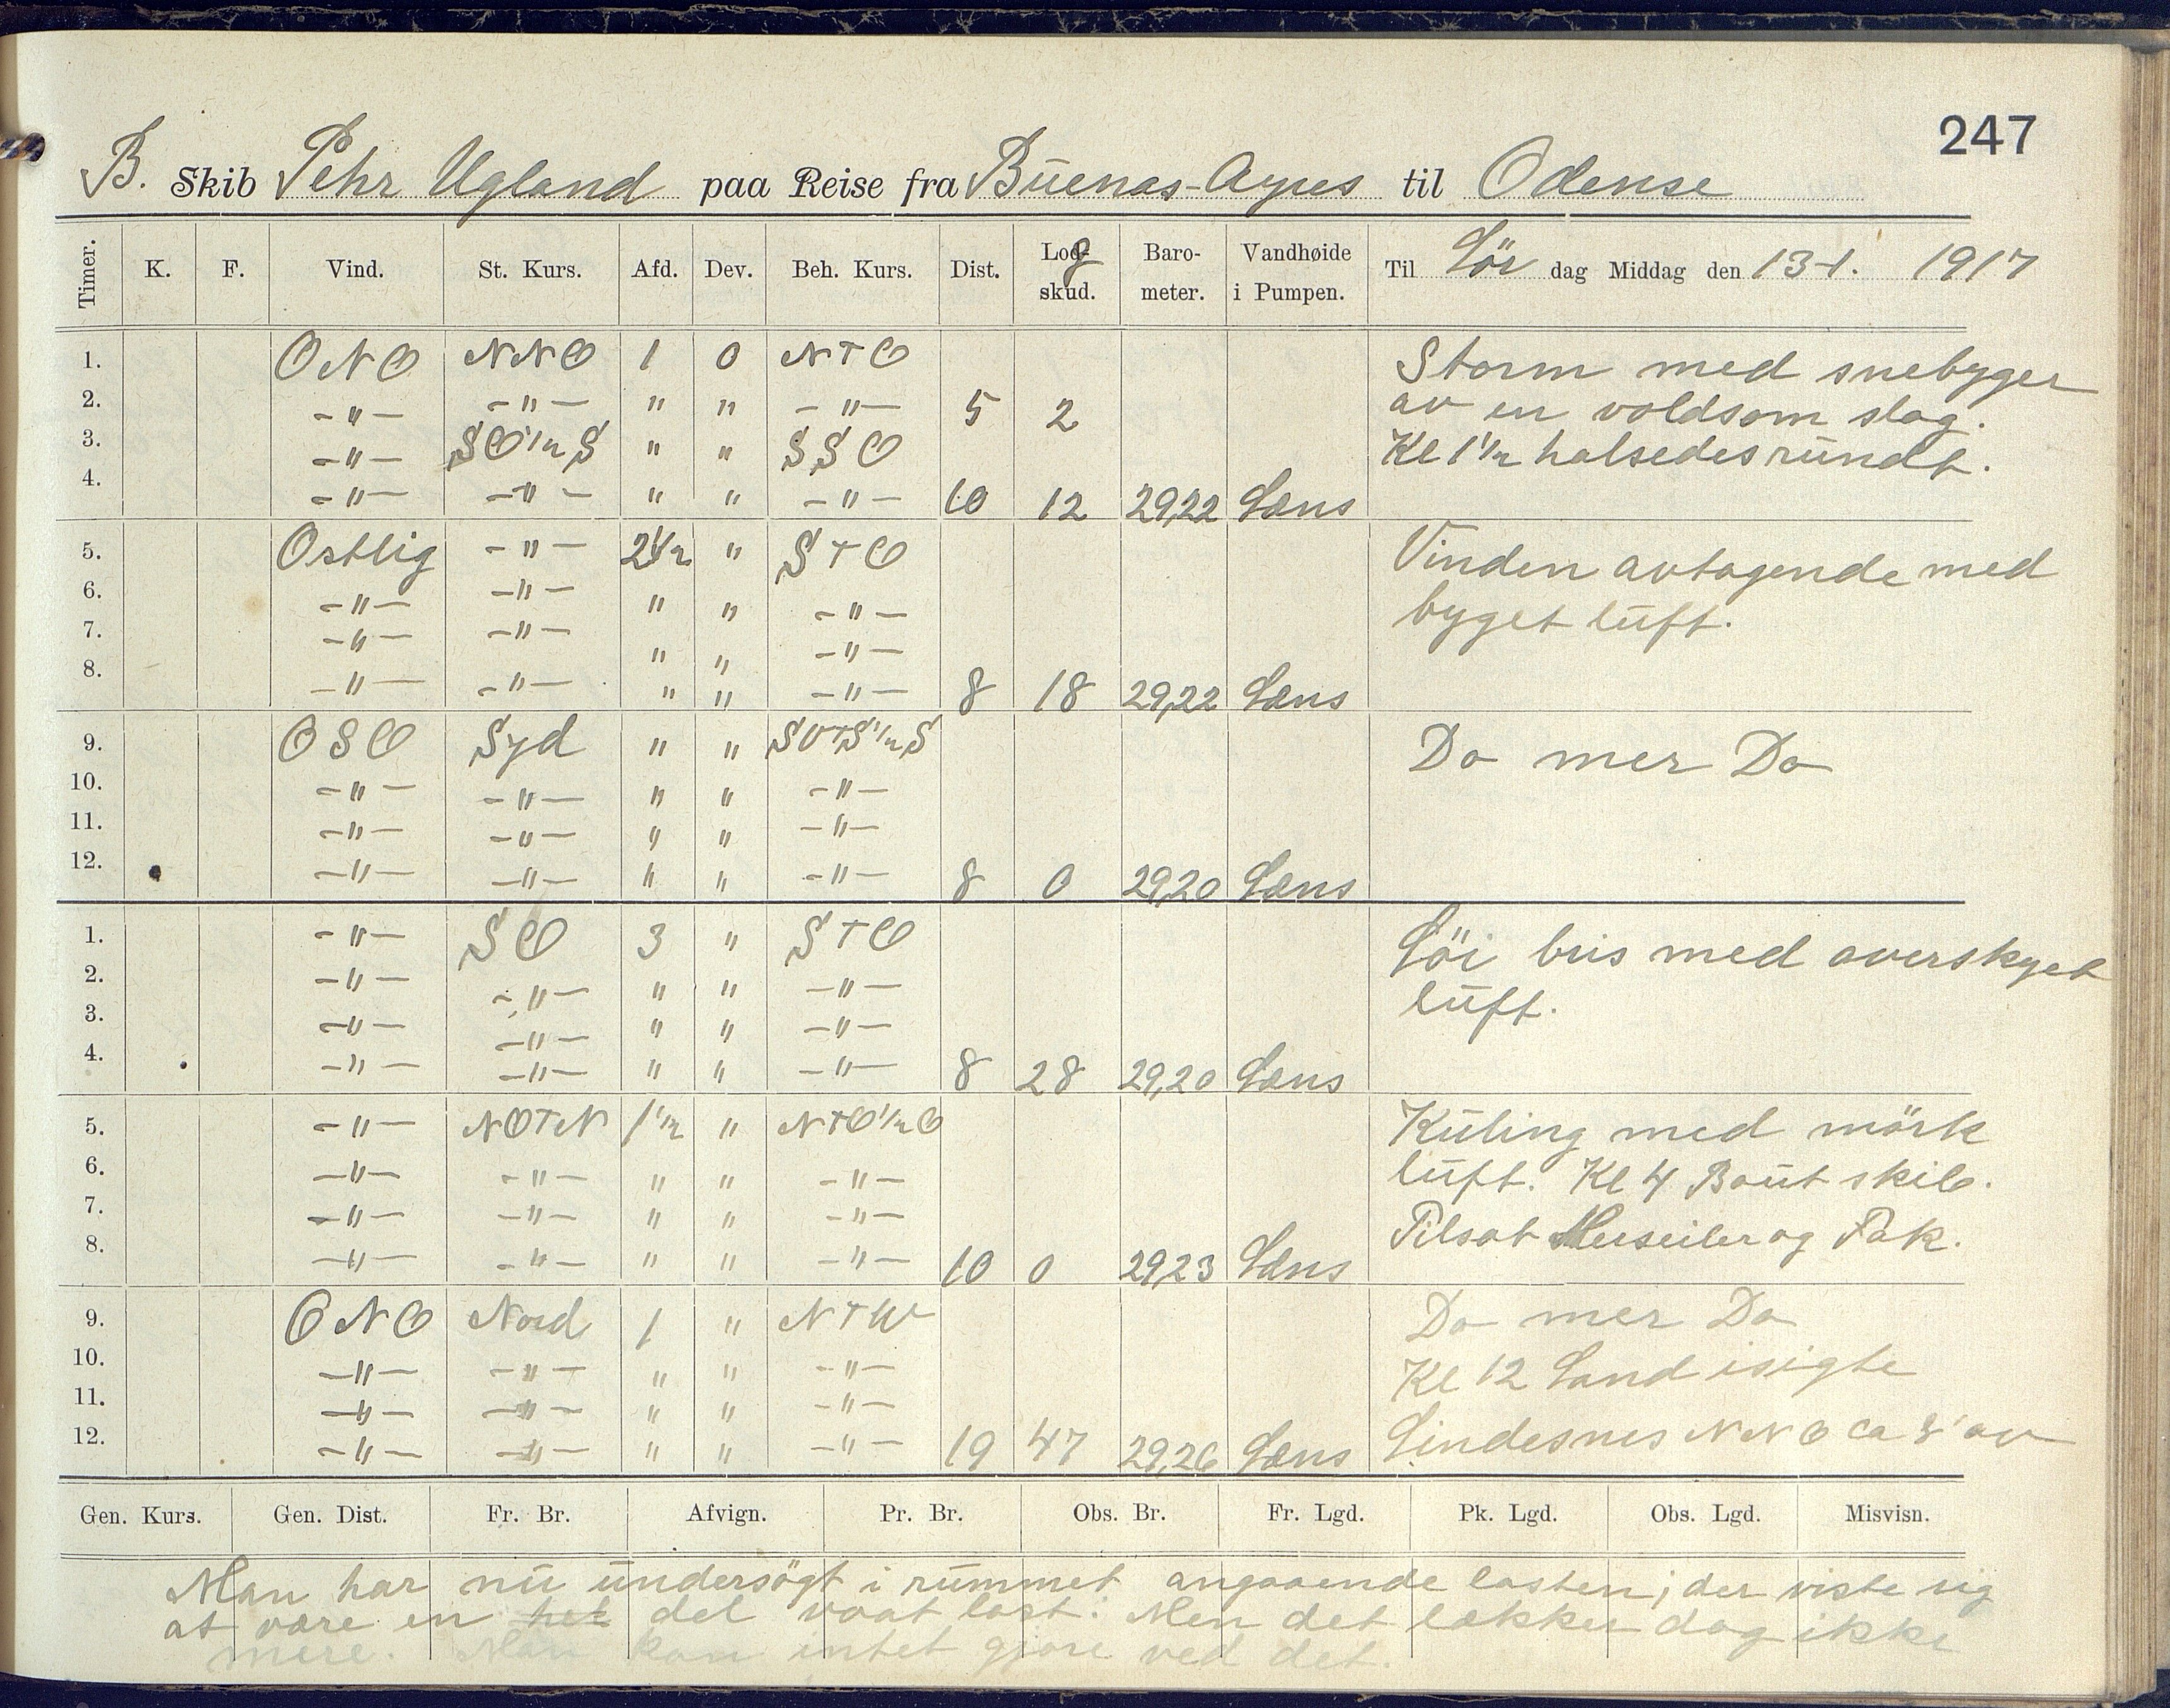 247
B. Skib Pehr Ugland paa Reise fra Buenas-Ayres til Odense
Timer. K. F. Vind. St. Kurs. Afd. Dev. Beh. Kurs. Dist. Log-skud. Baro-meter. Vandhøide i Pumpen. Til Lör dag Middag den 13-1. 1917
1. ONO NNO 1 0 NTO Storm med snebyger
2. -"- -"- " " -"- 5 2 av en voldsom slag.
3. -"- SO1/2S " " SSO Kl 1 1/2 halsedes rundt.
4. -"- -"- " " -"- 10 12 29,22 Læns
5. Ostlig -"- 2 1/2 " STO Vinden avtagende med
6. -"- -"- " " -"- byget luft.
7. -"- -"- " " -"-
8. -"- -"- " " -"- 8 18 29,22 Læns
9. OSO Syd " " SOTS1/2S Do mer Do
10. -"- -"- " " -"-
11. -"- -"- " " -"-
12. -"- -"- " " -"- 8 0 29,20 Læns
1. -"- SO 3 " STO Löi bris med overskyet
2. -"- -"- " " -"- luft.
3. -"- -"- " " -"-
4. -"- -"- " " -"- 8 28 29,20 Læns
5. -"- NOTN 1 1/2 " NTO1/2O Kuling med mörk
6. -"- -"- " " -"- luft. Kl 4 Baut skib.
7. -"- -"- " " -"- Tilsat Merseiler og Fok.
8. -"- -"- " " -"- 10 0 29,23 Læns
9. ONO Nord 1 " NTW Do mer Do
10. -"- -"- " " -"- Kl 12 Land isigte
11. -"- -"- " " -"- Lindesnes NNO ca 8' av
12. -"- -"- " " -"- 19 47 29,26 Læns
Gen. Kurs. Gen. Dist. Fr. Br. Afvign. Pr. Br. Obs. Br. Fr. Lgd. Pk. Lgd. Obs. Lgd. Misvisn.
Man har nu undersögt i rummet angaaende lasten; der viste sig
at være en het del vaat last. Men det lækker dog ikke
mere. Man kan intet gjøre ved det.